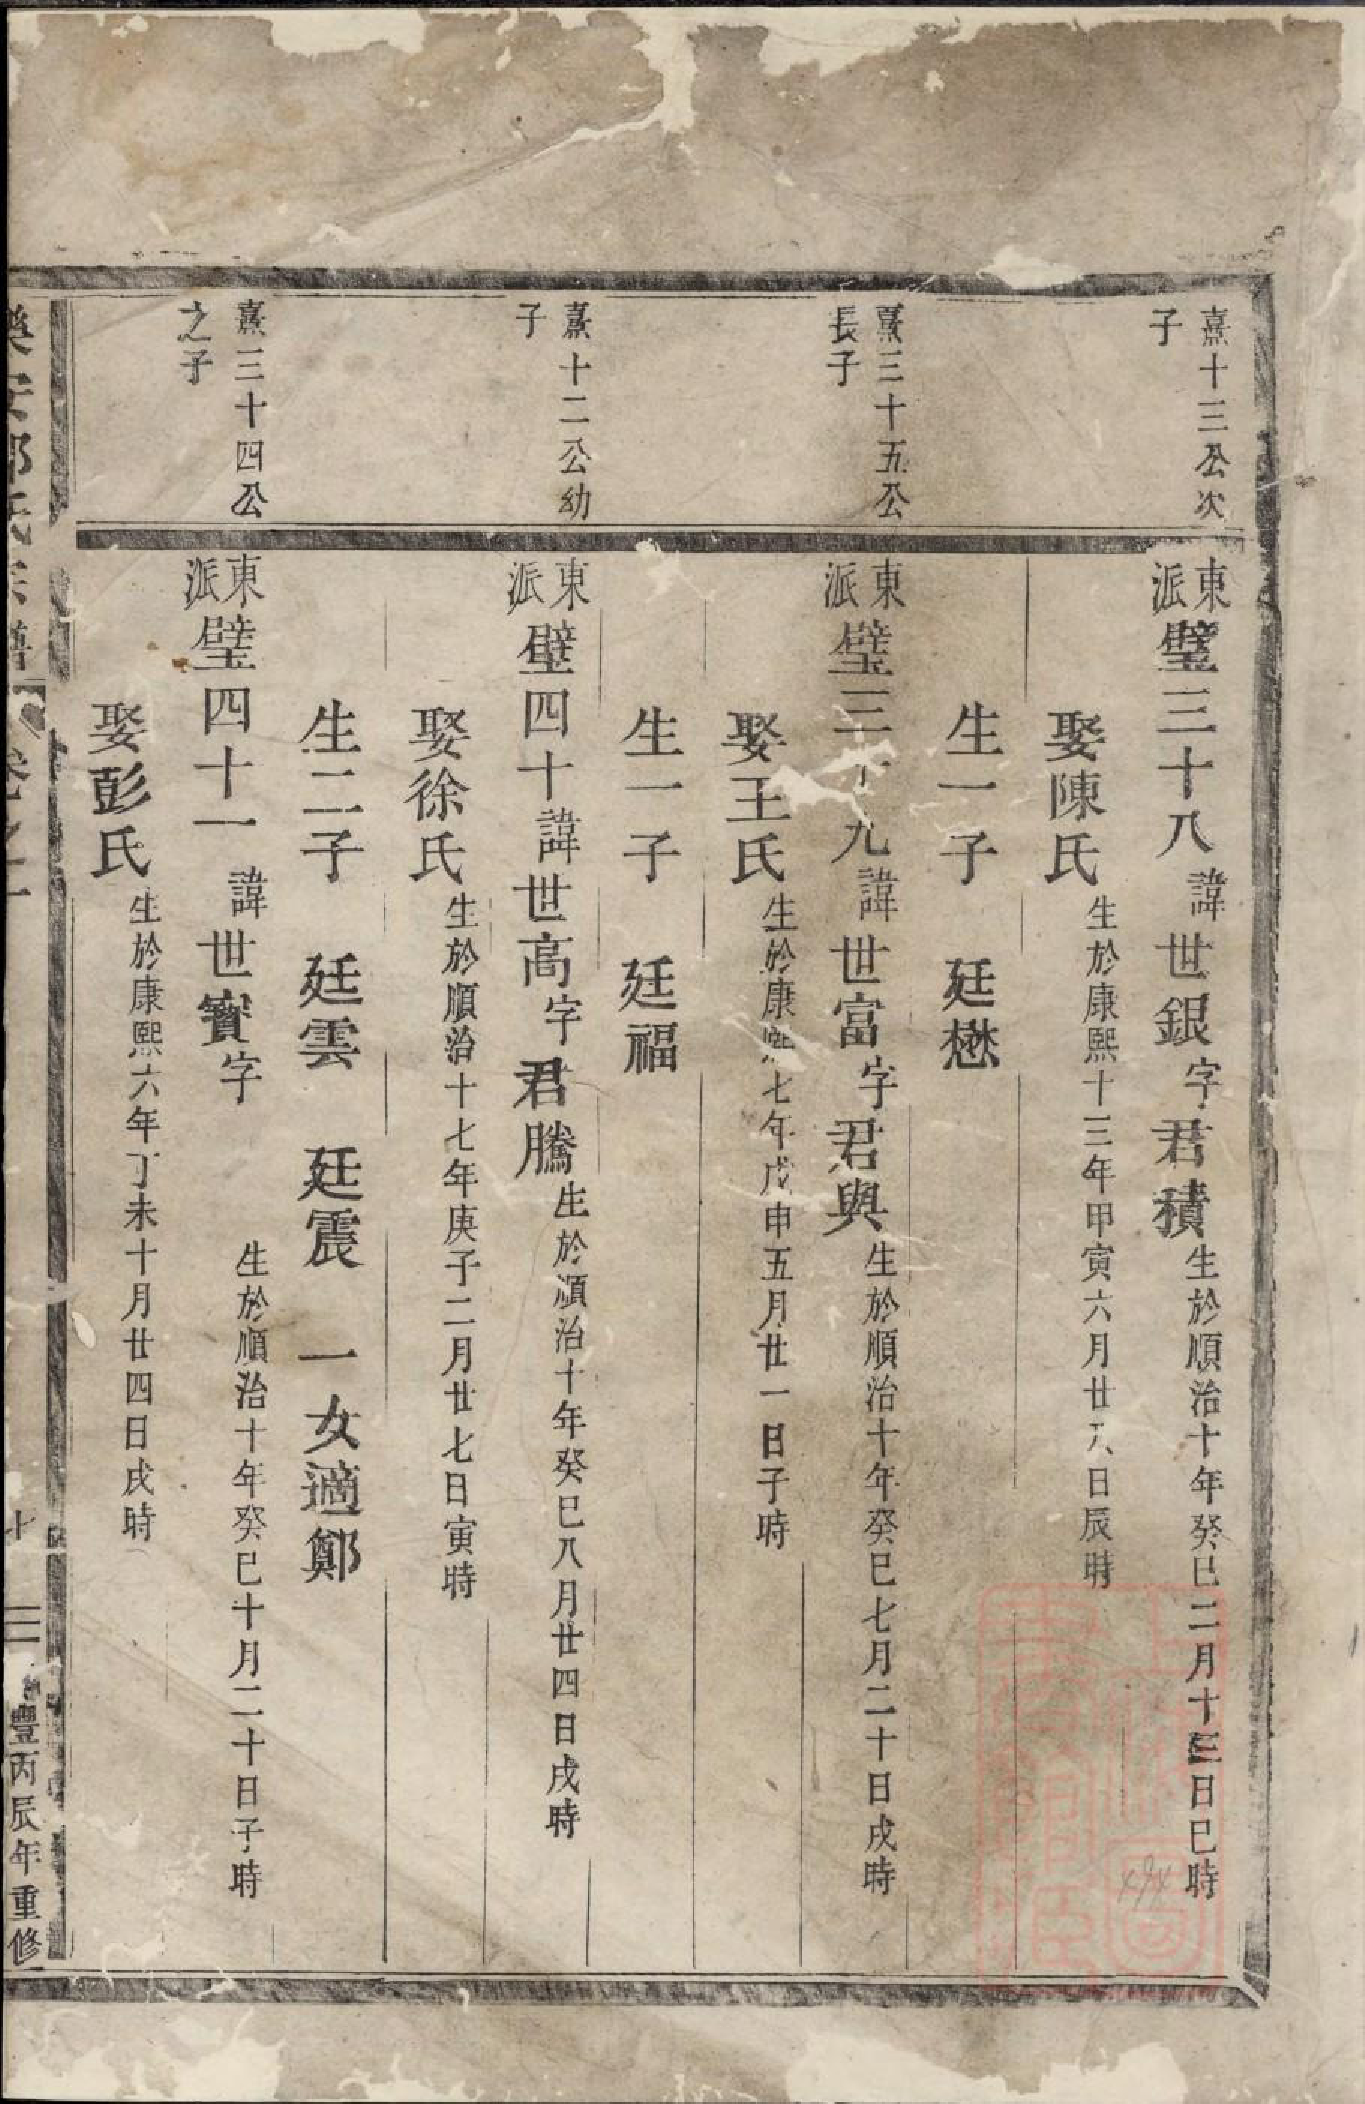 熹十三公次
子
東
派
璧三十八 諱世銀字君積 生於順治十年癸巳二月十三日巳時
娶陳氏 生於康熙十三年甲寅六月廿八日辰時
生一子 廷懋
熹三十五公
長子
東
派
璧三十九 諱世富字君與 生於順治十年癸巳七月二十日戌時
娶王氏 生於康熙七年戊申五月廿一日子時
生一子 廷福
熹十二公幼
子
東
派
璧四十 諱世高字君騰 生於順治十年癸巳八月廿四日戌時
娶徐氏 生於順治十七年庚子二月廿七日寅時
生二子 廷雲 廷震 一女適鄭
熹三十四公
之子
東
派
璧四十一 諱世寳字 生於順治十年癸巳十月二十日子時
娶彭氏 生於康熙六年丁未十月廿四日戌時
豐丙辰年重修